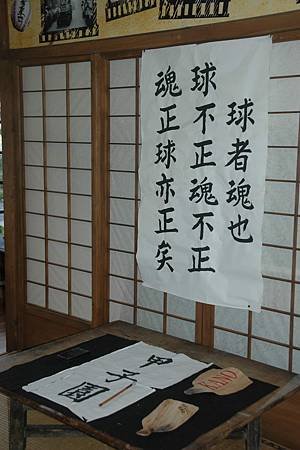 球者魂也
球不正魂不正
魂正球亦正矣
甲子園
KANO